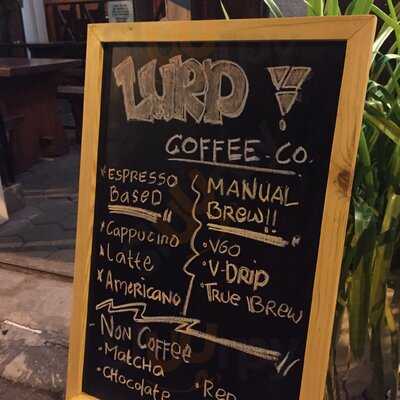 LURP !
COFFEE . CO.
ESPRESSO
BASED
* Cappucino
* Latte
* Americano
MANUAL
BREW!!
• VGO
• V-DRIP
• TRUE BREW
NON COFFEE
- MATCHA
- CHOCOLATE
• RED